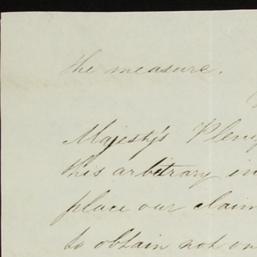 the measure.
Majesty's Plen
this arbitrary in
place our claim
to obtain not on